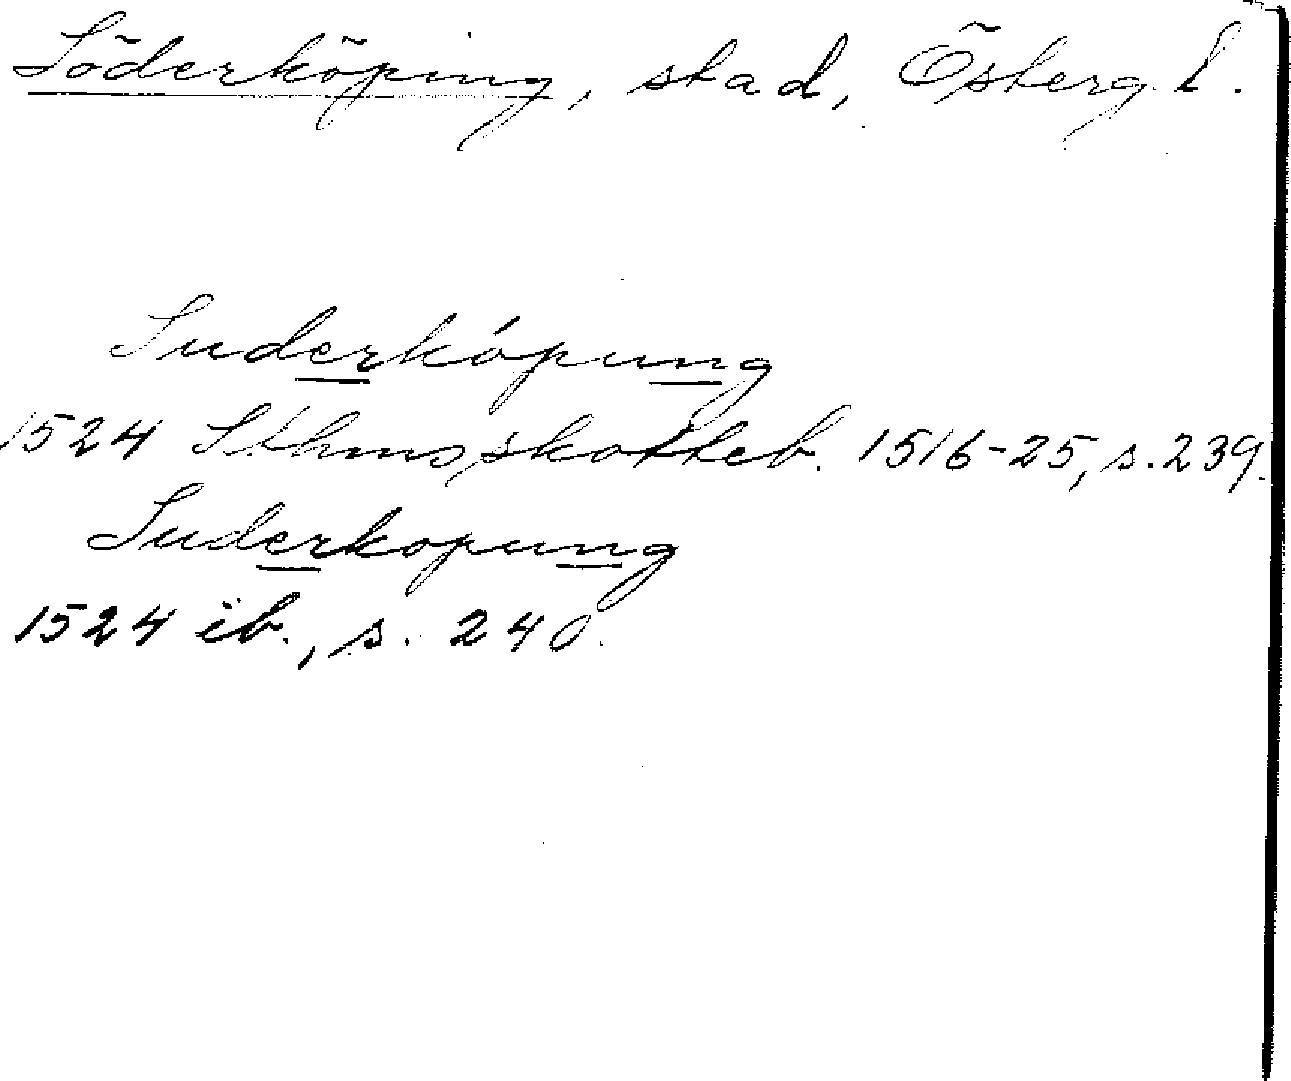 Söderköping, stad, Österg. l.
Suderkópung
1524 Sthms skotteb. 1516-25, s. 239.
Suderkopung
1524 ib., s. 240.